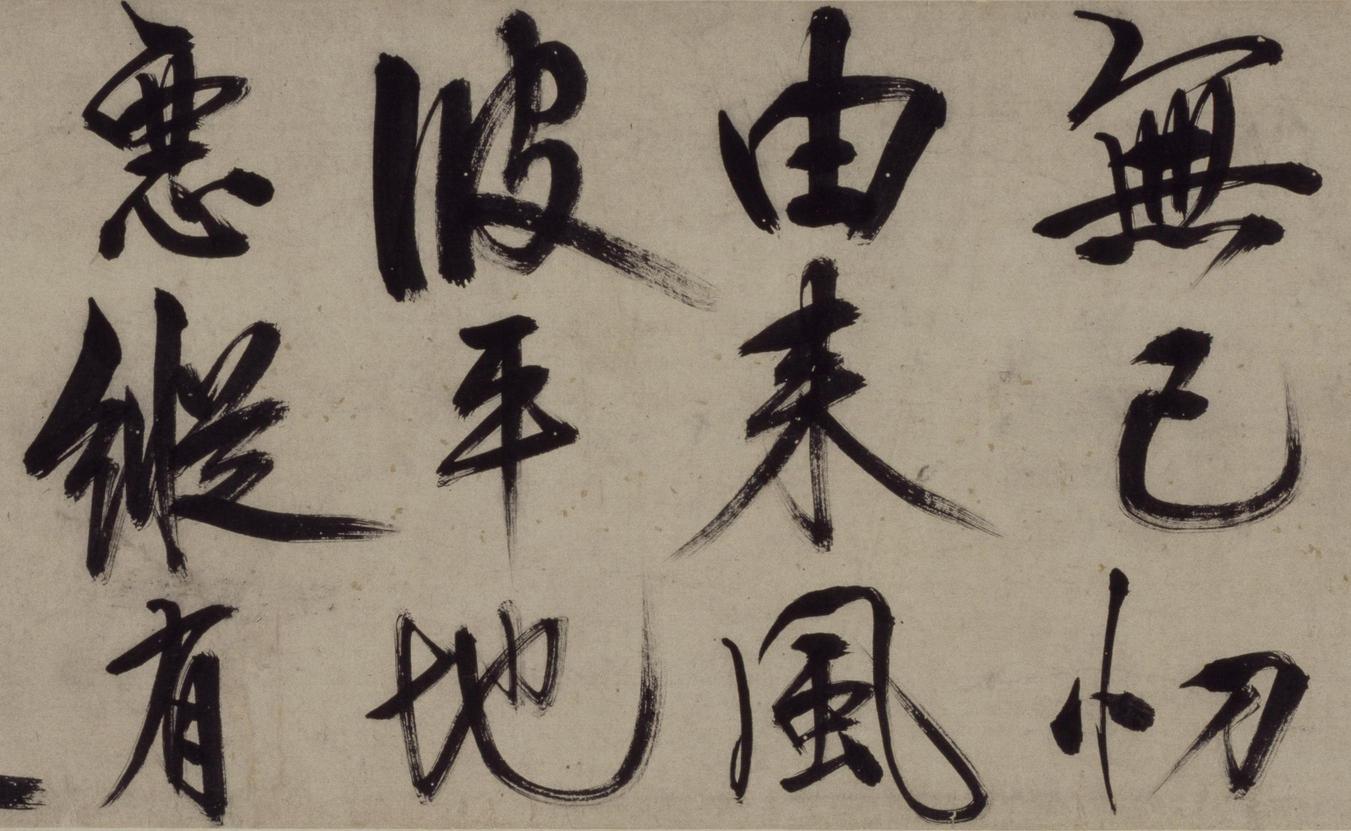 無已忉
由来風
波平地
惡縱有